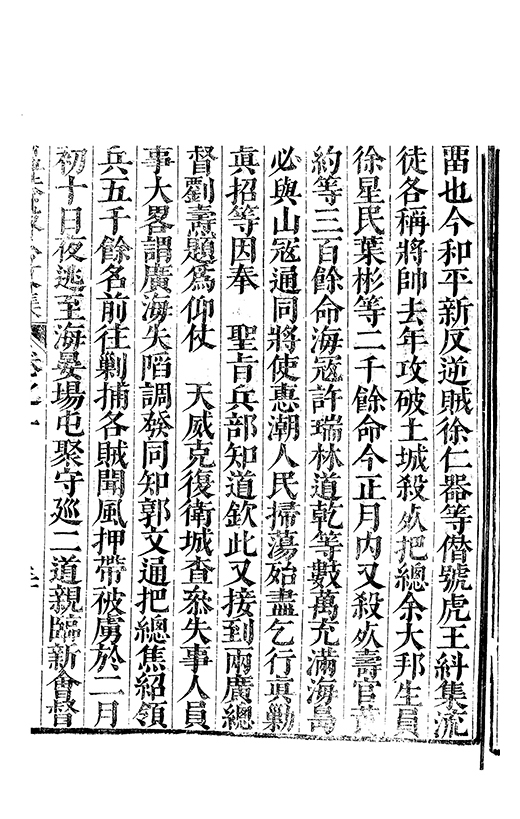 畱也今和平新反逆賊徐仁器等僭號虎王糾集流
徒各稱將帥去年攻破土城殺死把總余大邦生員
徐星民葉彬等二千餘命今正月內又殺死壽官黃
約等三百餘命海寇許瑞林道乾等數萬充滿海島
必與山寇通同將使惠潮人民掃蕩殆盡乞行真勦
真招等因奉　聖旨兵部知道欽此又接到兩廣總
督劉燾題爲仰仗　天威克復衛城查叅失事人員
事大畧謂廣海失陷調發同知郭文通把總焦紹領
兵五千餘名前往勦捕各賊聞風押帶被虜於二月
初十日夜逃至海晏場屯聚守廵二道親臨新會督
卷之一